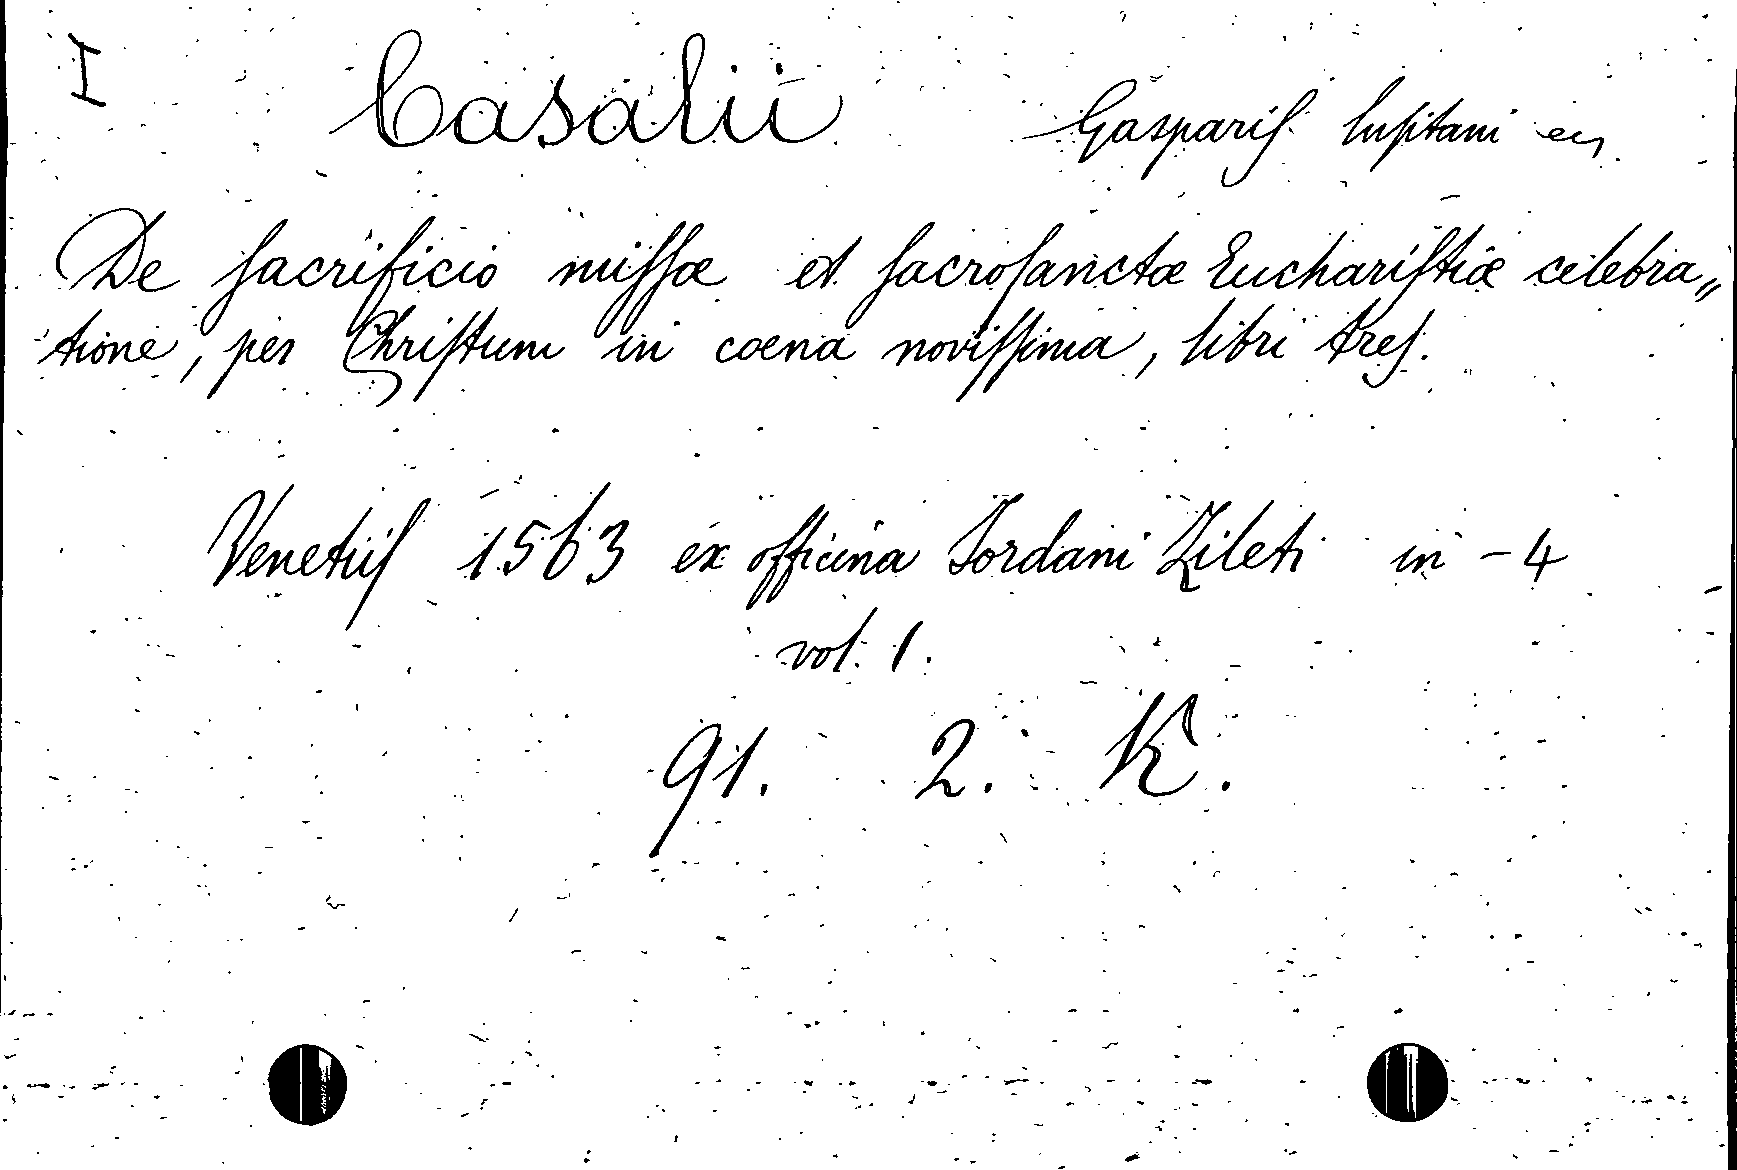 I Casalii Gasparis Lusitani
De sacrificio missæ et sacrosanctæ Eucharistiæ celebra„
tione, per Christum in cœna novissima, libri tres.
Venetiis 1563 ex officina Jordani Zileti in-4
vol. 1.
91. 2. K.